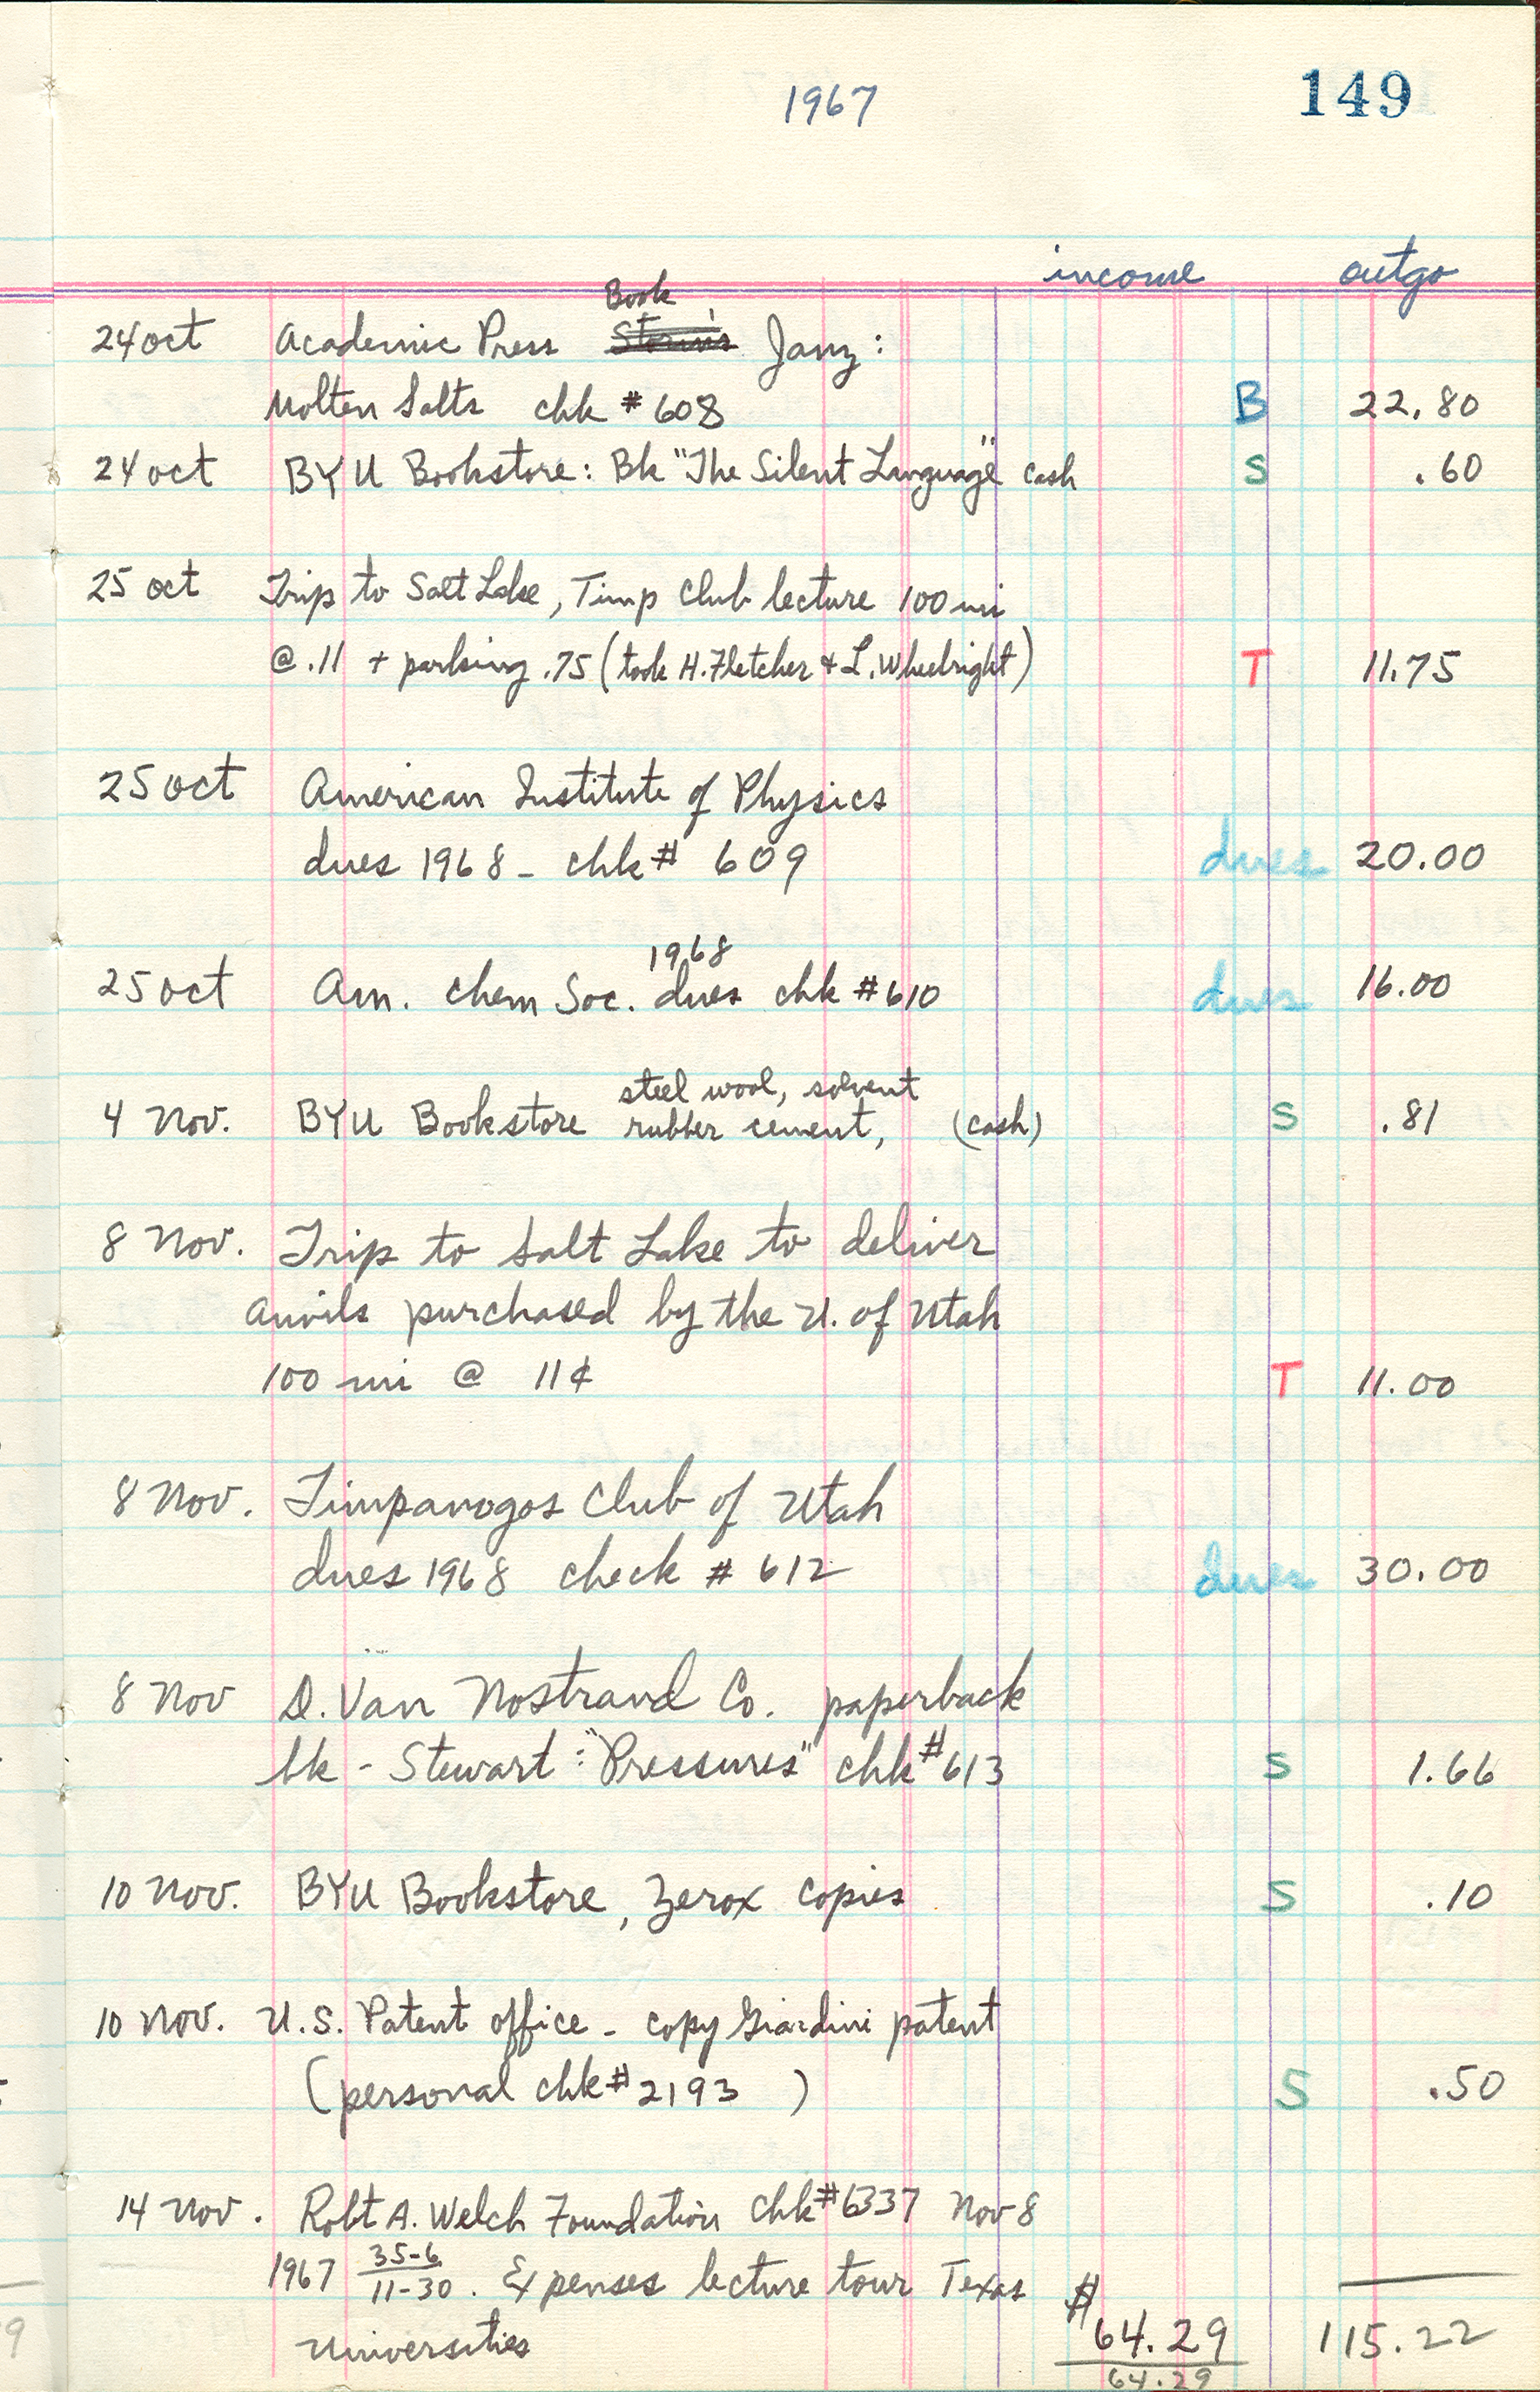 1967 149
income outgo
Book
24 oct Academic Press Janz:
Molten Salts chk #608 B 22.80
24 oct BYU Bookstore: Bk "The Silent Language" cash S .60
25 oct Trip to Salt Lake, Timp Club lecture 100 mi
@ .11 + parking .75 (took H. Fletcher & L. Wheelright) T 11.75
25 oct American Institute of Physics
dues 1968 - chk# 609 dues 20.00
1968
25 oct Am. Chem Soc. dues chk #610 dues 16.00
steel wool, solvent
4 Nov. BYU Bookstore rubber cement, (cash) S .81
8 Nov. Trip to Salt Lake to deliver
anvils purchased by the U. of Utah
100 mi @ 11¢ T 11.00
8 Nov. Timpanogos Club of Utah
dues 1968 check # 612 dues 30.00
8 Nov D. Van Nostrand Co. paperback
bk - Stewart: "Pressures" chk #613 S 1.66
10 Nov. BYU Bookstore, Zerox copies S .10
10 Nov. U.S. Patent office - copy Giardini patent
(personal chk #2193 ) S .50
14 Nov. Robt A. Welch Foundation Chk #6337 Nov 8
1967 35-6
11-30. Expenses lecture tour Texas
Universities $64.29 115.22
64.29